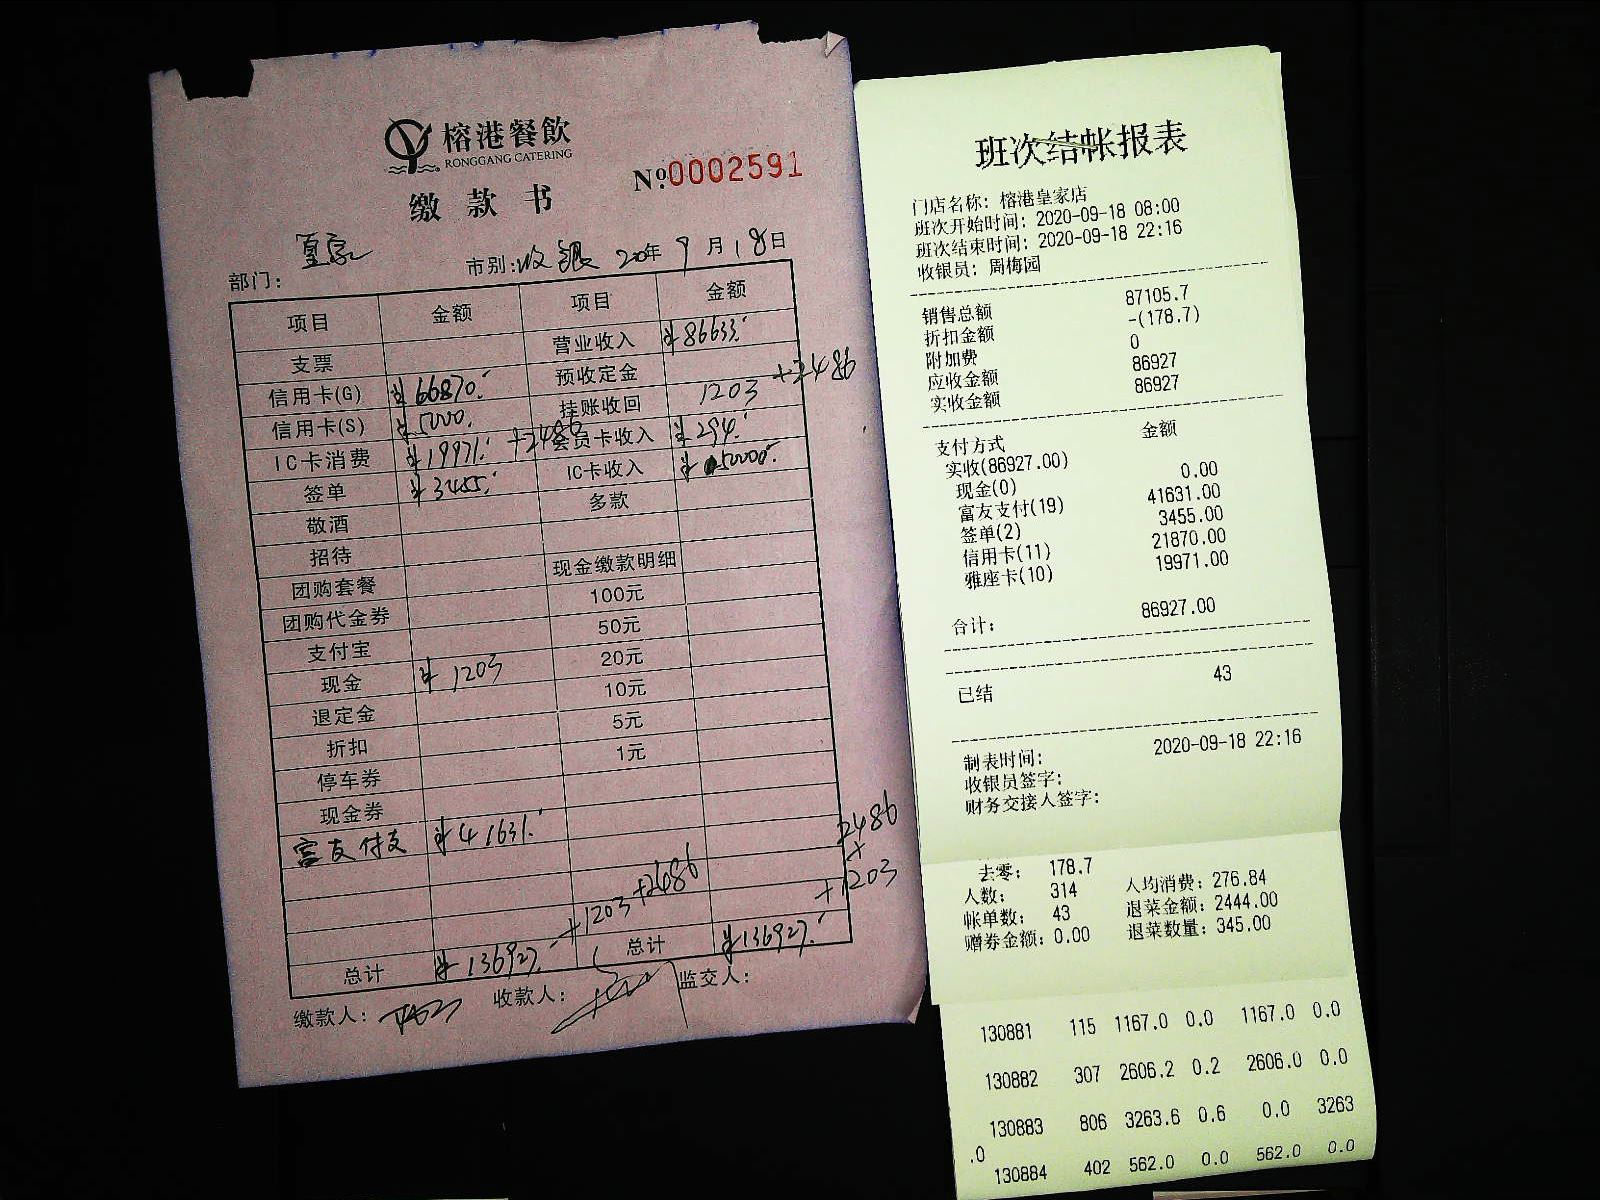 榕港餐飲
RONGGANG CATERING
缴款书
№0002591
部门: 皇家 市别:收银 20年9月18日
项目 金额 项目 金额
支票 营业收入 ¥86633.
信用卡(G) ¥66870. 预收定金
信用卡(S) ¥5000. 挂账收回 1203 +2486
IC卡消费 ¥19971. +2486 会员卡收入 ¥294.
签单 ¥3455. IC卡收入 ¥50000.
敬酒 多款
招待
团购套餐 现金缴款明细
团购代金券 100元
支付宝 50元
现金 ¥1203 20元
退定金 10元
折扣 5元
停车券 1元
现金券
富友付支 ¥41631.
2486
+
+1203
总计 ¥136927. +1203 +2486 总计 ¥136927.
缴款人: 收款人: 监交人:
班次结帐报表
门店名称: 榕港皇家店
班次开始时间: 2020-09-18 08:00
班次结束时间: 2020-09-18 22:16
收银员: 周梅园
销售总额 87105.7
折扣金额 -(178.7)
附加费 0
应收金额 86927
实收金额 86927
支付方式 金额
实收(86927.00)
现金(0) 0.00
富友支付(19) 41631.00
签单(2) 3455.00
信用卡(11) 21870.00
雅座卡(10) 19971.00
合计: 86927.00
已结 43
制表时间: 2020-09-18 22:16
收银员签字:
财务交接人签字:
去零: 178.7
人数: 314 人均消费: 276.84
帐单数: 43 退菜金额: 2444.00
赠券金额: 0.00 退菜数量: 345.00
130881 115 1167.0 0.0 1167.0 0.0
130882 307 2606.2 0.2 2606.0 0.0
130883 806 3263.6 0.6 0.0 3263
.0
130884 402 562.0 0.0 562.0 0.0